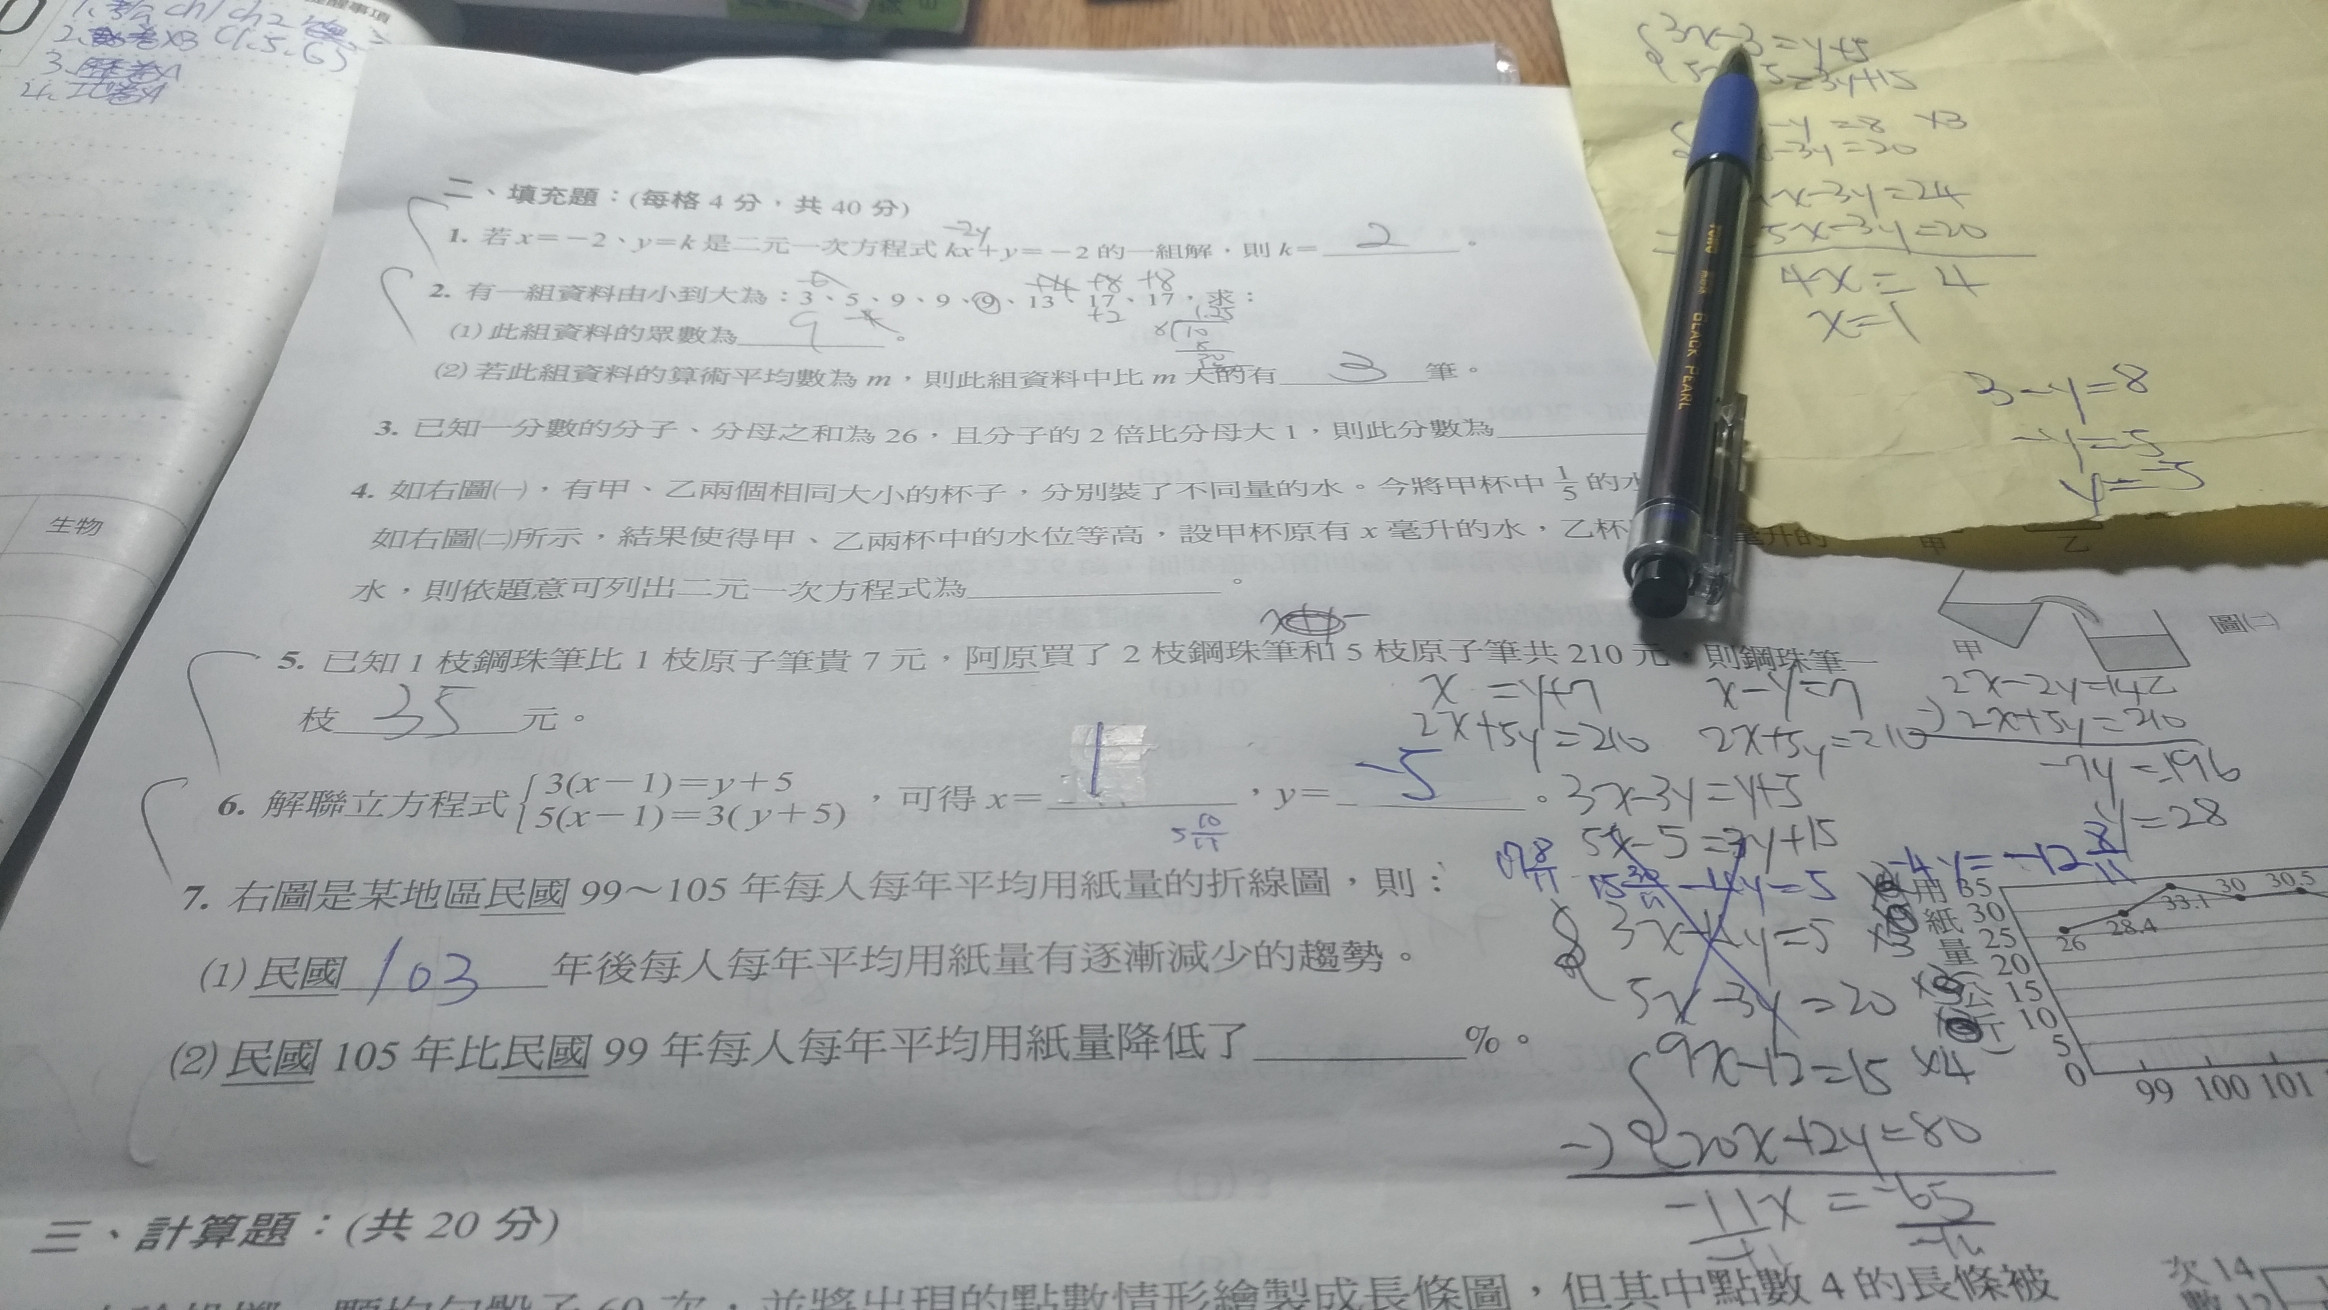 生物
二、填充題：(每格 4 分，共 40 分)
-2y
1. 若 x＝－2、y＝k 是二元一次方程式 kx＋y＝－2 的一組解，則 k＝ 2 。
-6 +4 +8 +8
2. 有一組資料由小到大為：3、5、9、9、9、13、17、17，求：
+2
(1) 此組資料的眾數為 9 。
1.25
8 10
(2) 若此組資料的算術平均數為 m，則此組資料中比 m 大的有 3 筆。
3. 已知一分數的分子、分母之和為 26，且分子的 2 倍比分母大 1，則此分數為
4. 如右圖㈠，有甲、乙兩個相同大小的杯子，分別裝了不同量的水。今將甲杯中 1/5 的水
如右圖㈡所示，結果使得甲、乙兩杯中的水位等高，設甲杯原有 x 毫升的水，乙杯 毫升的
水，則依題意可列出二元一次方程式為 。
5. 已知 1 枝鋼珠筆比 1 枝原子筆貴 7 元，阿原買了 2 枝鋼珠筆和 5 枝原子筆共 210 元，則鋼珠筆一
枝 35 元。
6. 解聯立方程式 3(x－1)＝y＋5
5(x－1)＝3(y＋5) ，可得 x＝ 1 ，y＝ -5 。
5 10/11
7. 右圖是某地區民國 99～105 年每人每年平均用紙量的折線圖，則：
(1) 民國 103 年後每人每年平均用紙量有逐漸減少的趨勢。
(2) 民國 105 年比民國 99 年每人每年平均用紙量降低了 %。
三、計算題：(共 20 分)
60 次，並將出現的點數情形繪製成長條圖，但其中點數 4 的長條被
3x-3=y+5
5=3y+15
-y=8 ×3
-3y=20
x-3y=24
5x-3y=20
4x=4
x=1
3-y=8
-y=5
y=-5
甲
乙
圖㈡
甲
乙
x =y+7
2x+5y=210
x-y=7
2x+5y=210
2x-2y=14
-) 2x+5y=210
-7y=-196
y=28
3x-3y=y+5
5x-5=3y+15
-4y=5
-4y=-12 8/11
3x-4y=5 ×3
5x-3y=20
9x-12=15 ×4
-) 20x+2y=80
-11x=-65
用紙量(公斤)
35
30
25
20
15
10
5
0
26
28.4
33.1
30
30.5
99 100 101
次
14
12